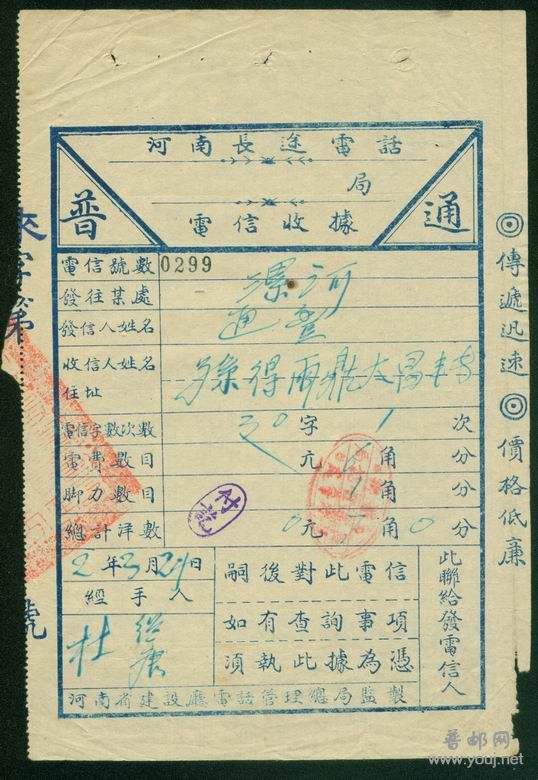 河南長途電話
局
普
通
電信收據
電信號數 0299
發往某處 漯河
發信人姓名 通豐
收信人姓名
住址
電信字數次數 字 1 次
電費數目 元 角 分
腳力數目 1 角 分
總計洋數 0 元 7 角 0 分
付訖
2 年 3 月 29 日
經手人
杜
嗣後對此電信
如有查詢事項
須執此據為憑
此聯給發電信人
河南省建設廳電話管理總局監製
◎傳遞迅速◎價格低廉
字第
號
普邮网
www.youj.net